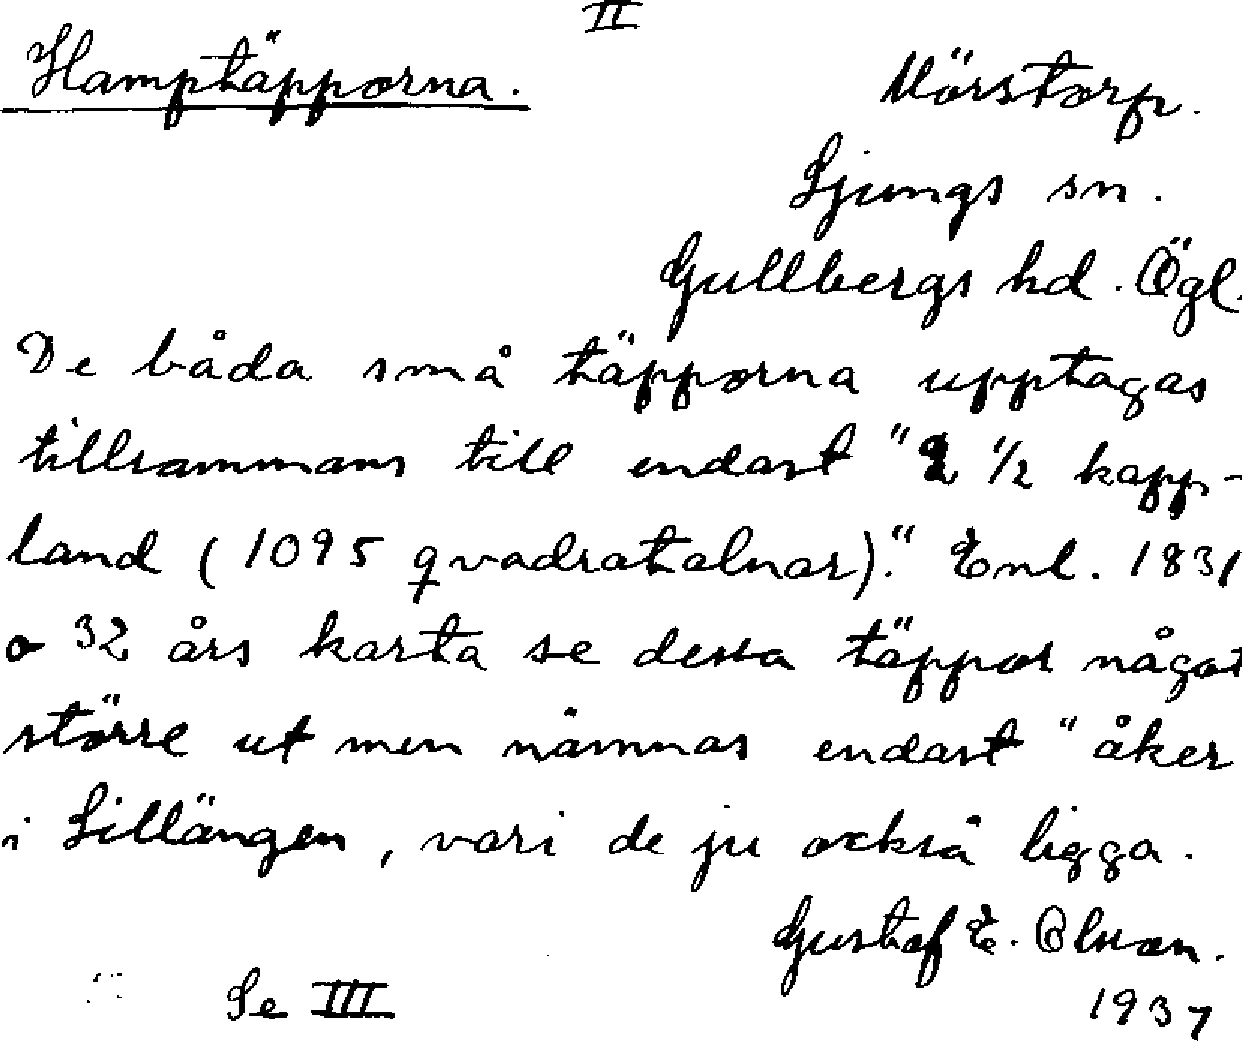 II
Hamptäpporna.
Mörstorp.
Ljungs sn.
Gullbergs hd. Ögl.
De båda små täpporna upptagas
tillsammans till endast "2 1/2 kapp-
land (1095 qvadratalnar)." Enl. 1831
o 32 års karta se dessa täppor något
större ut men nämnas endast "åker
i Lillängen, vari de ju också ligga.
Gustaf E. Olsson.
Se III
1937